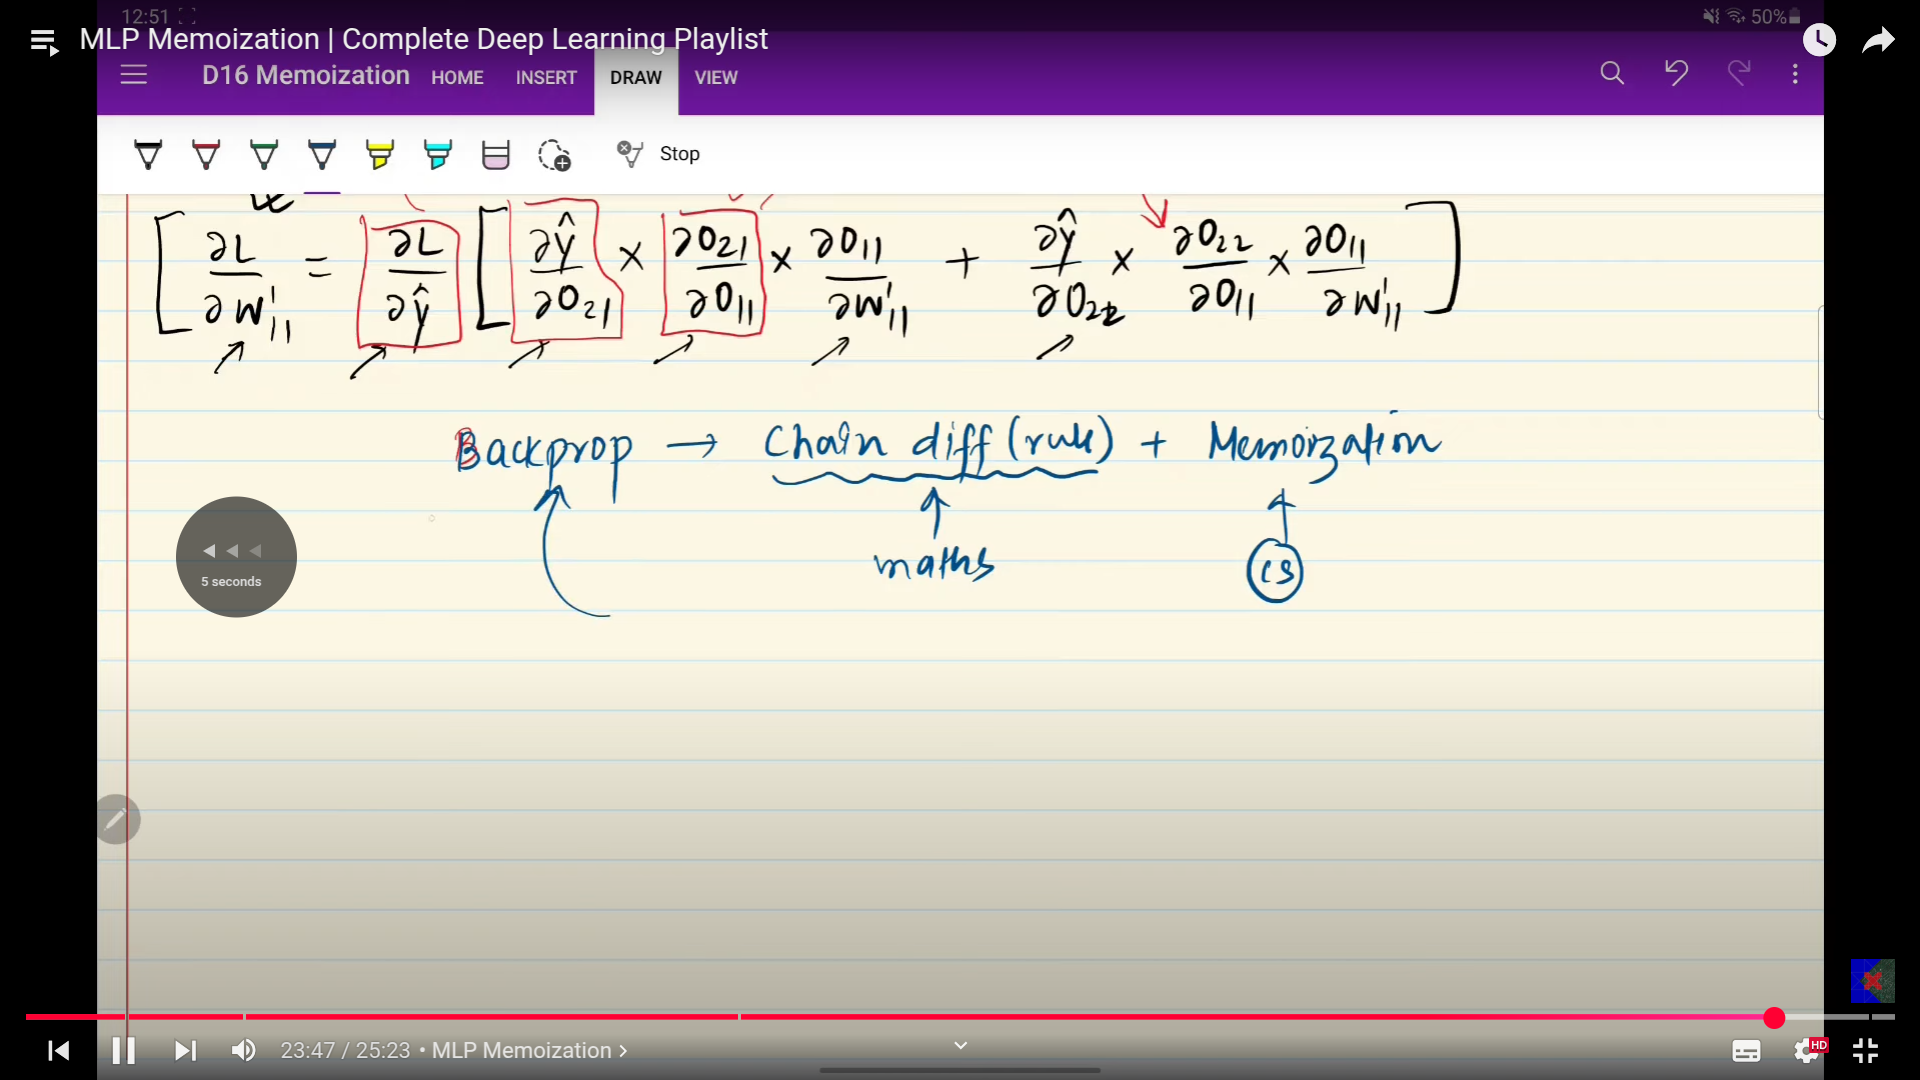 12:51 50%
MLP Memoization | Complete Deep Learning Playlist
D16 Memoization HOME INSERT DRAW VIEW
Stop
[ ∂L/∂W¹₁₁ = ∂L/∂ŷ [ ∂ŷ/∂O₂₁ × ∂O₂₁/∂O₁₁ × ∂O₁₁/∂W¹₁₁ + ∂ŷ/∂O₂₂ × ∂O₂₂/∂O₁₁ × ∂O₁₁/∂W¹₁₁ ]
Backprop → Chain diff (rule) + Memoization
5 seconds
maths
CS
23:47 / 25:23 • MLP Memoization ›
HD